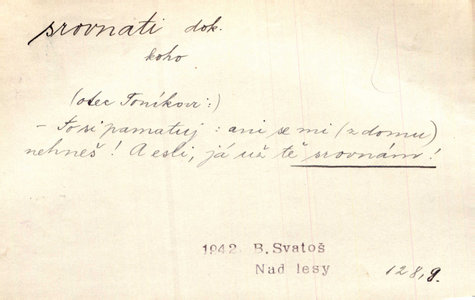 srovnati dok.
koho
(otec Toníkovi:)
– To si pamatuj: ani se mi (z domu)
nehneš! A esli, já už tě srovnám!
1942 B. Svatoš
Nad lesy
128,9.